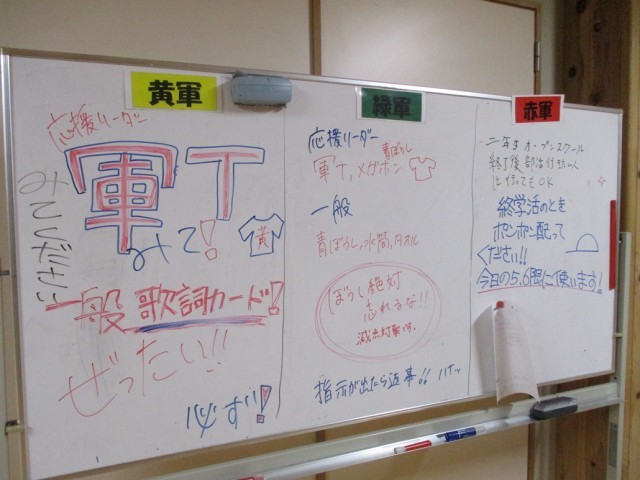 黄軍
応援リーダー
軍T
みて!
黄
一般 歌詞カード!
ぜったい!!
必ず!
緑軍
応援リーダー
青ぼうし
軍T,メガホン
一般
青ぼうし,水筒,タオル
ぼうし絶対
忘れるな!!
減点対象です。
指示が出たら返事!! ハイッ
赤軍
二年生オープンスクール
終了後部活
行ってもOK
終学活のとき
ポンポン配って
ください!!
今日の5,6限に使います!